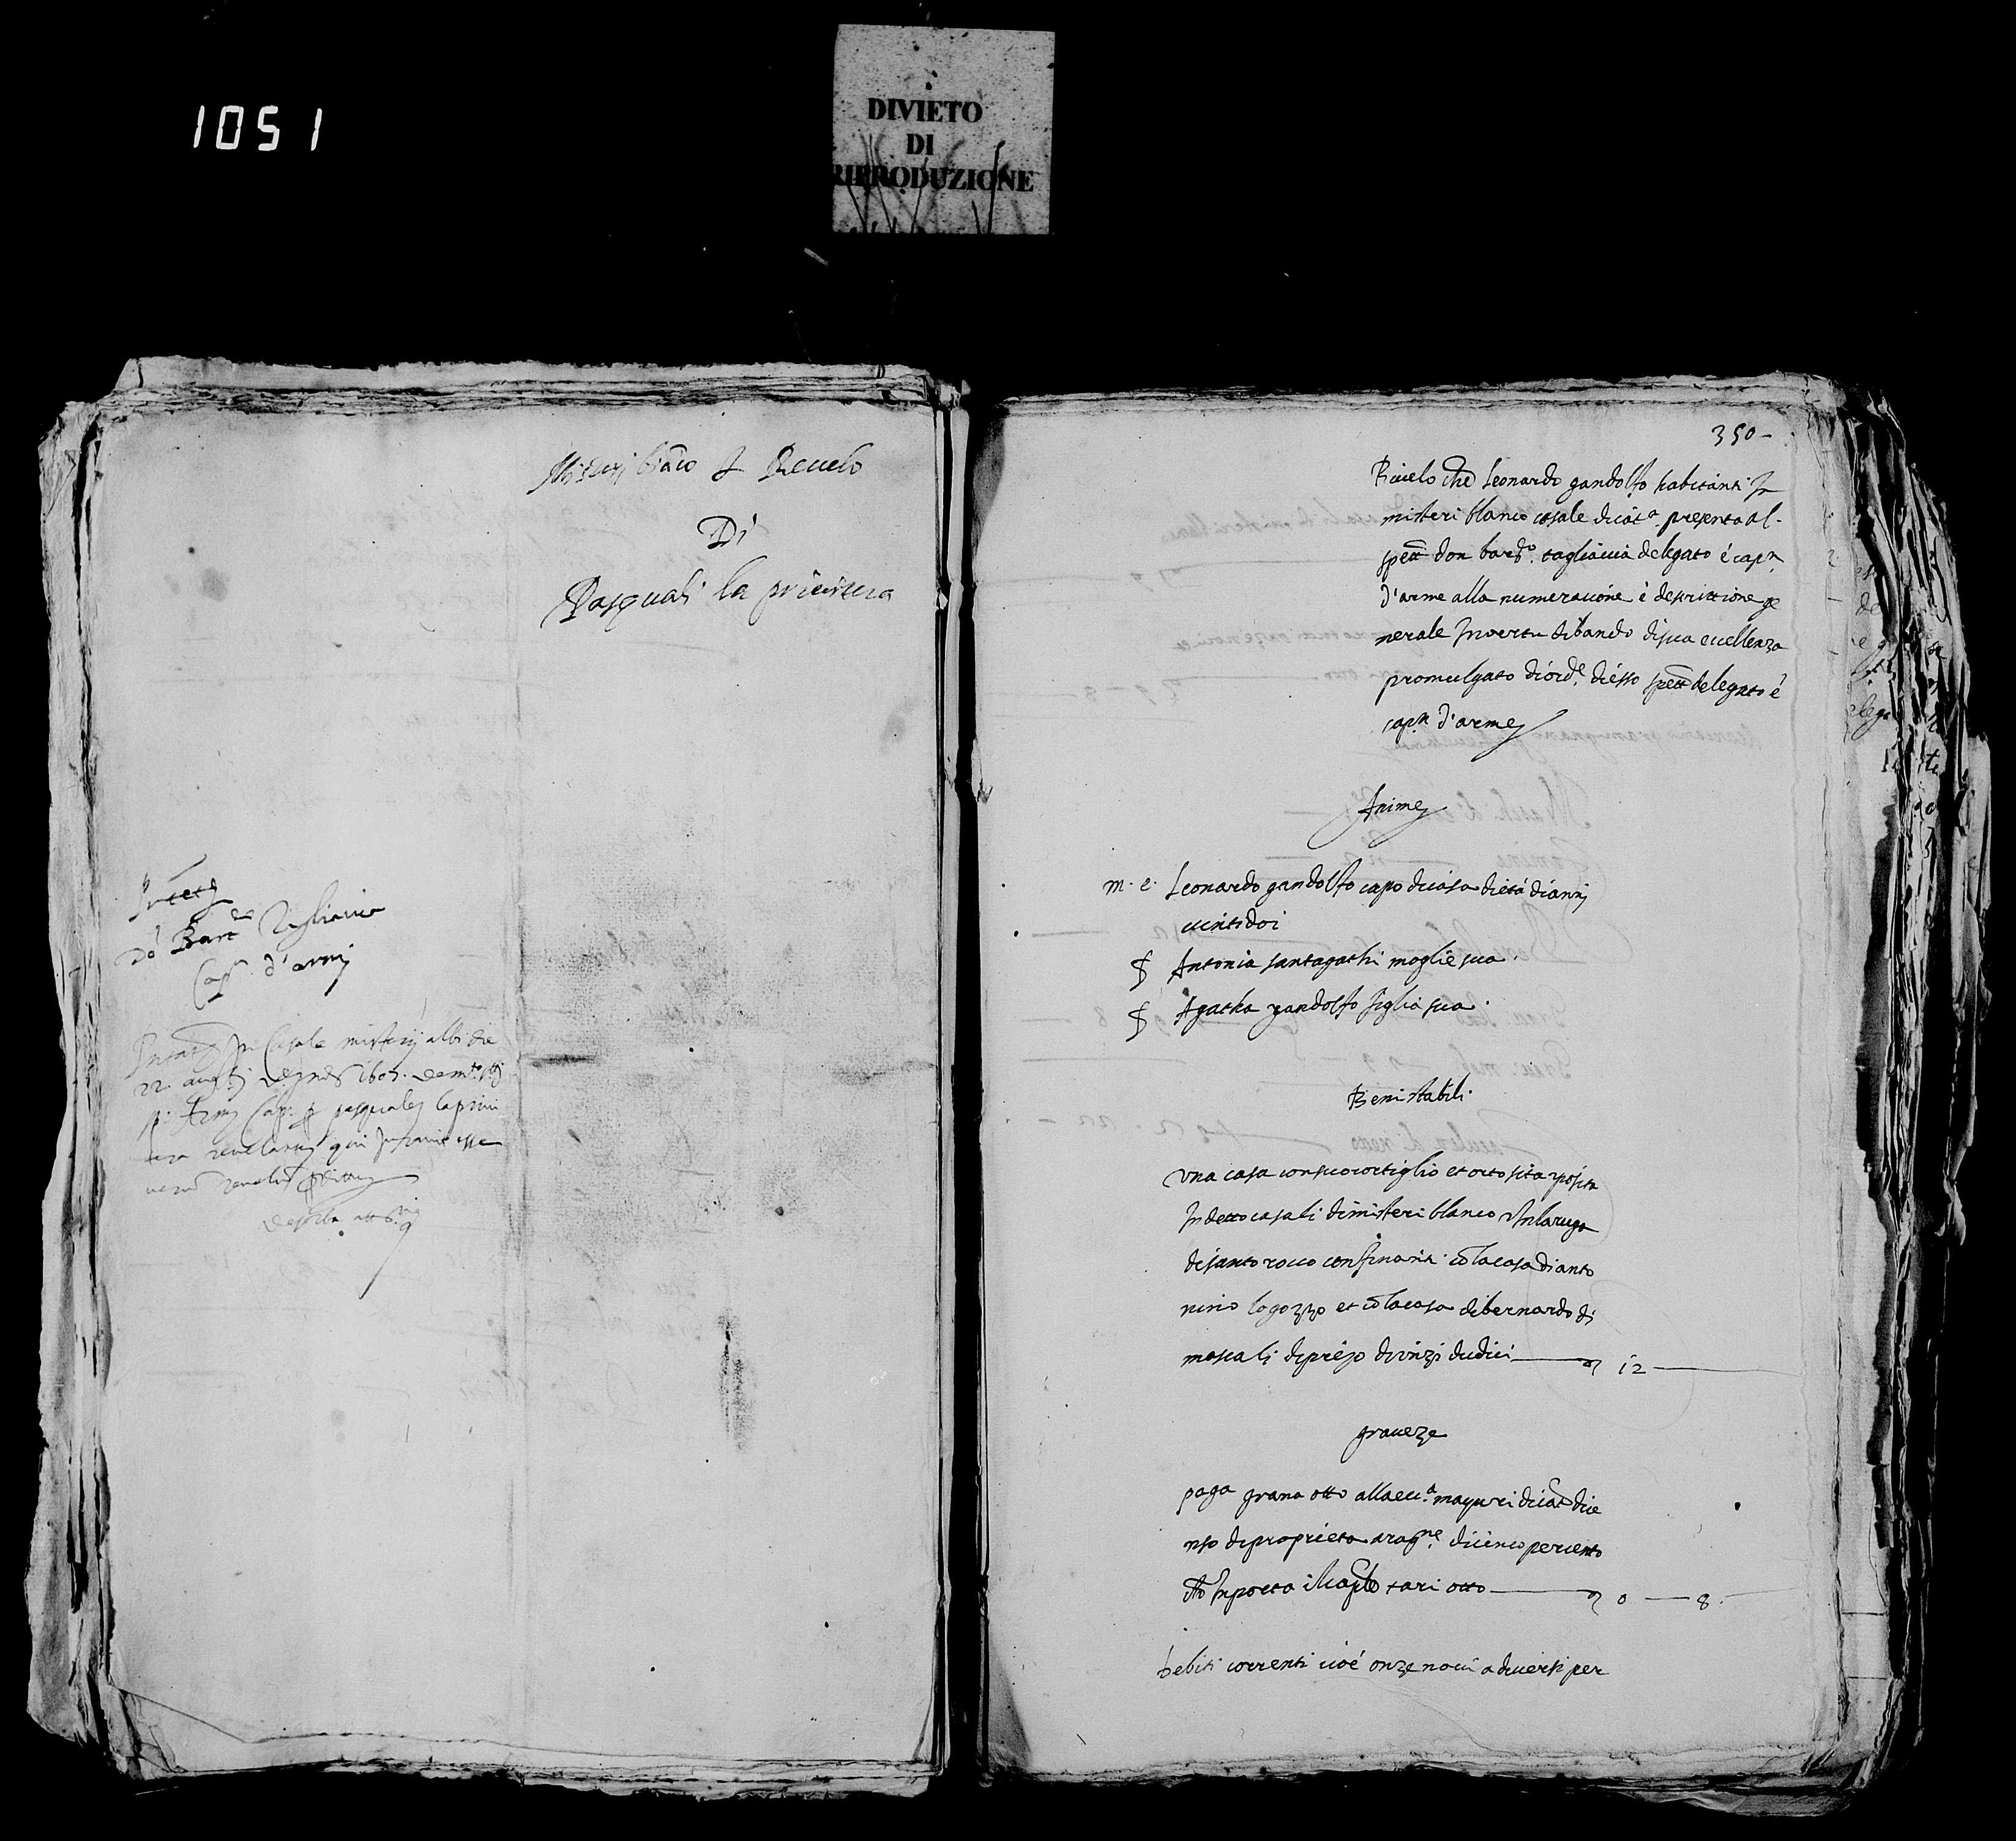 1051
DIVIETO
DI
RIPRODUZIONE
Misteri bianco Revelo
Di
Pasquali la privitera
Don Tagliavia
Cap.n d'armi
In Casale misterij albi die
22. augusti 1607.
pasquales la privi
tera revelans qui juravit esse
verum revelum
350
Rivelo che Leonardo gandolfo habitanti In
misteri blanco casale di cat.a presenta al
spett. don bard.o tagliavia delegato é cap.n
d'arme alla numeracione é descrittione ge
nerale In vertu di bando di sua eccellenza
promulgato di ord.e di esso spett. delegato é
cap.n d'arme
Anime
m. e. Leonardo gandolfo capo di casa di età di anni
vintidoi
Antonia santagathi moglie sua
Agatha gandolfo figlia sua
Beni stabili
Una casa con suo cortiglio et orto sita et posita
In detto casali di misteri blanco In la ruga
di santo rocco confinanti co la casa di anto
nino lo gozzo et co la casa di bernardo di
mascali di prezo di onzi dudici 12
graveze
paga grana otto alla ecc.a mayuri di cat. di ce
nso di proprieta a rag.ne di cinco per cento
Importa il capitale tari otto 0 8
debiti correnti cioé onze novi a diversi per